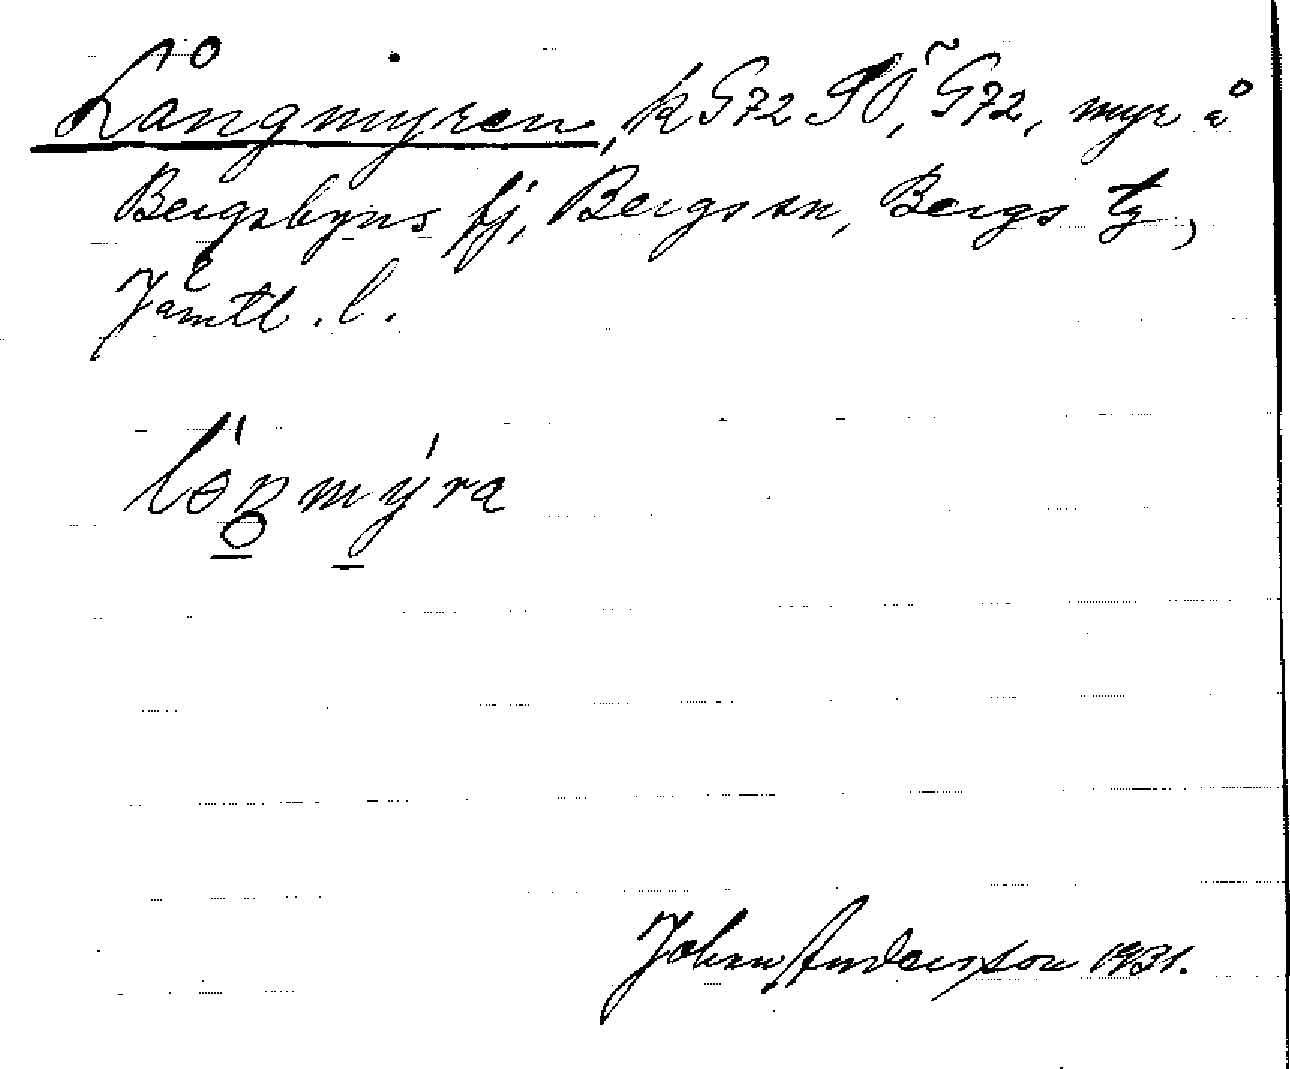 Långmyren, k G72 SO, G72, myr å
Bergsbyns fj, Bergs sn, Bergs tg,
Jämtl. l.
mýra
Johan Andersson 1931.